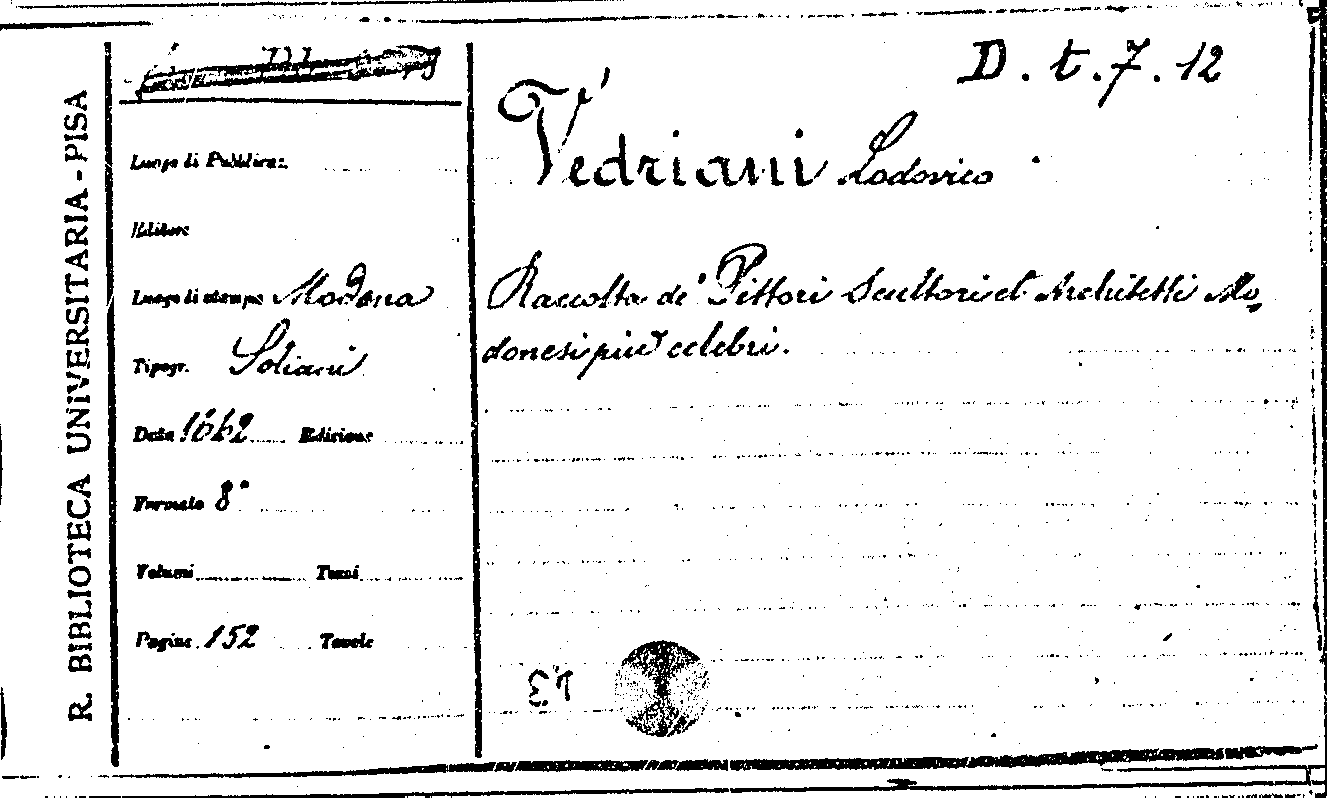 R. BIBLIOTECA UNIVERSITARIA - PISA
D. t. 7. 12
Vedriani Lodovico
Raccolta de' Pittori Scultori et Architetti Mo,
donesi più celebri.
Luogo di Pubblicaz.
Editore
Luogo di stampa Modona
Tipogr. Soliani
Data 1662 Edizione
Formato 8°
Volumi Tomi
Pagine 152 Tavole